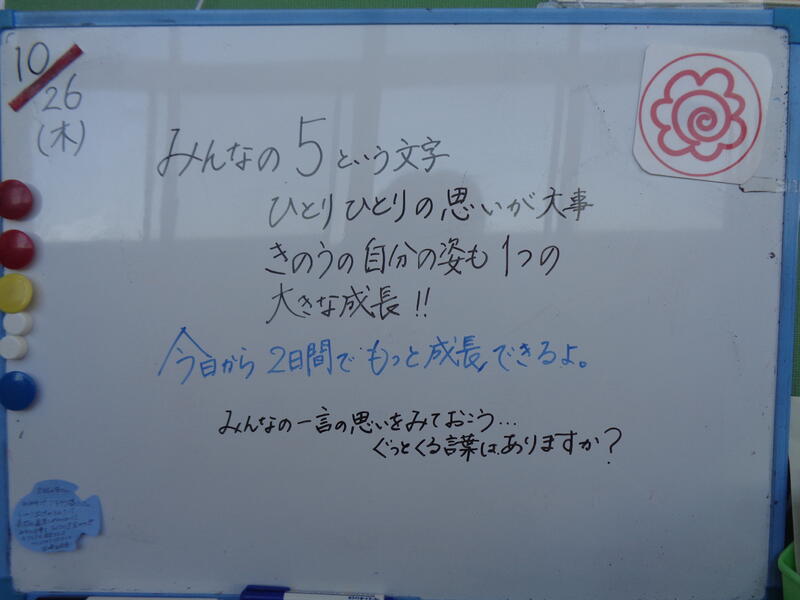 10/26
(木)
みんなの5という文字
ひとりひとりの思いが大事
きのうの自分の姿も1つの
大きな成長!!
今日から2日間でもっと成長できるよ。
みんなの一言の思いをみておこう…
ぐっとくる言葉はありますか?